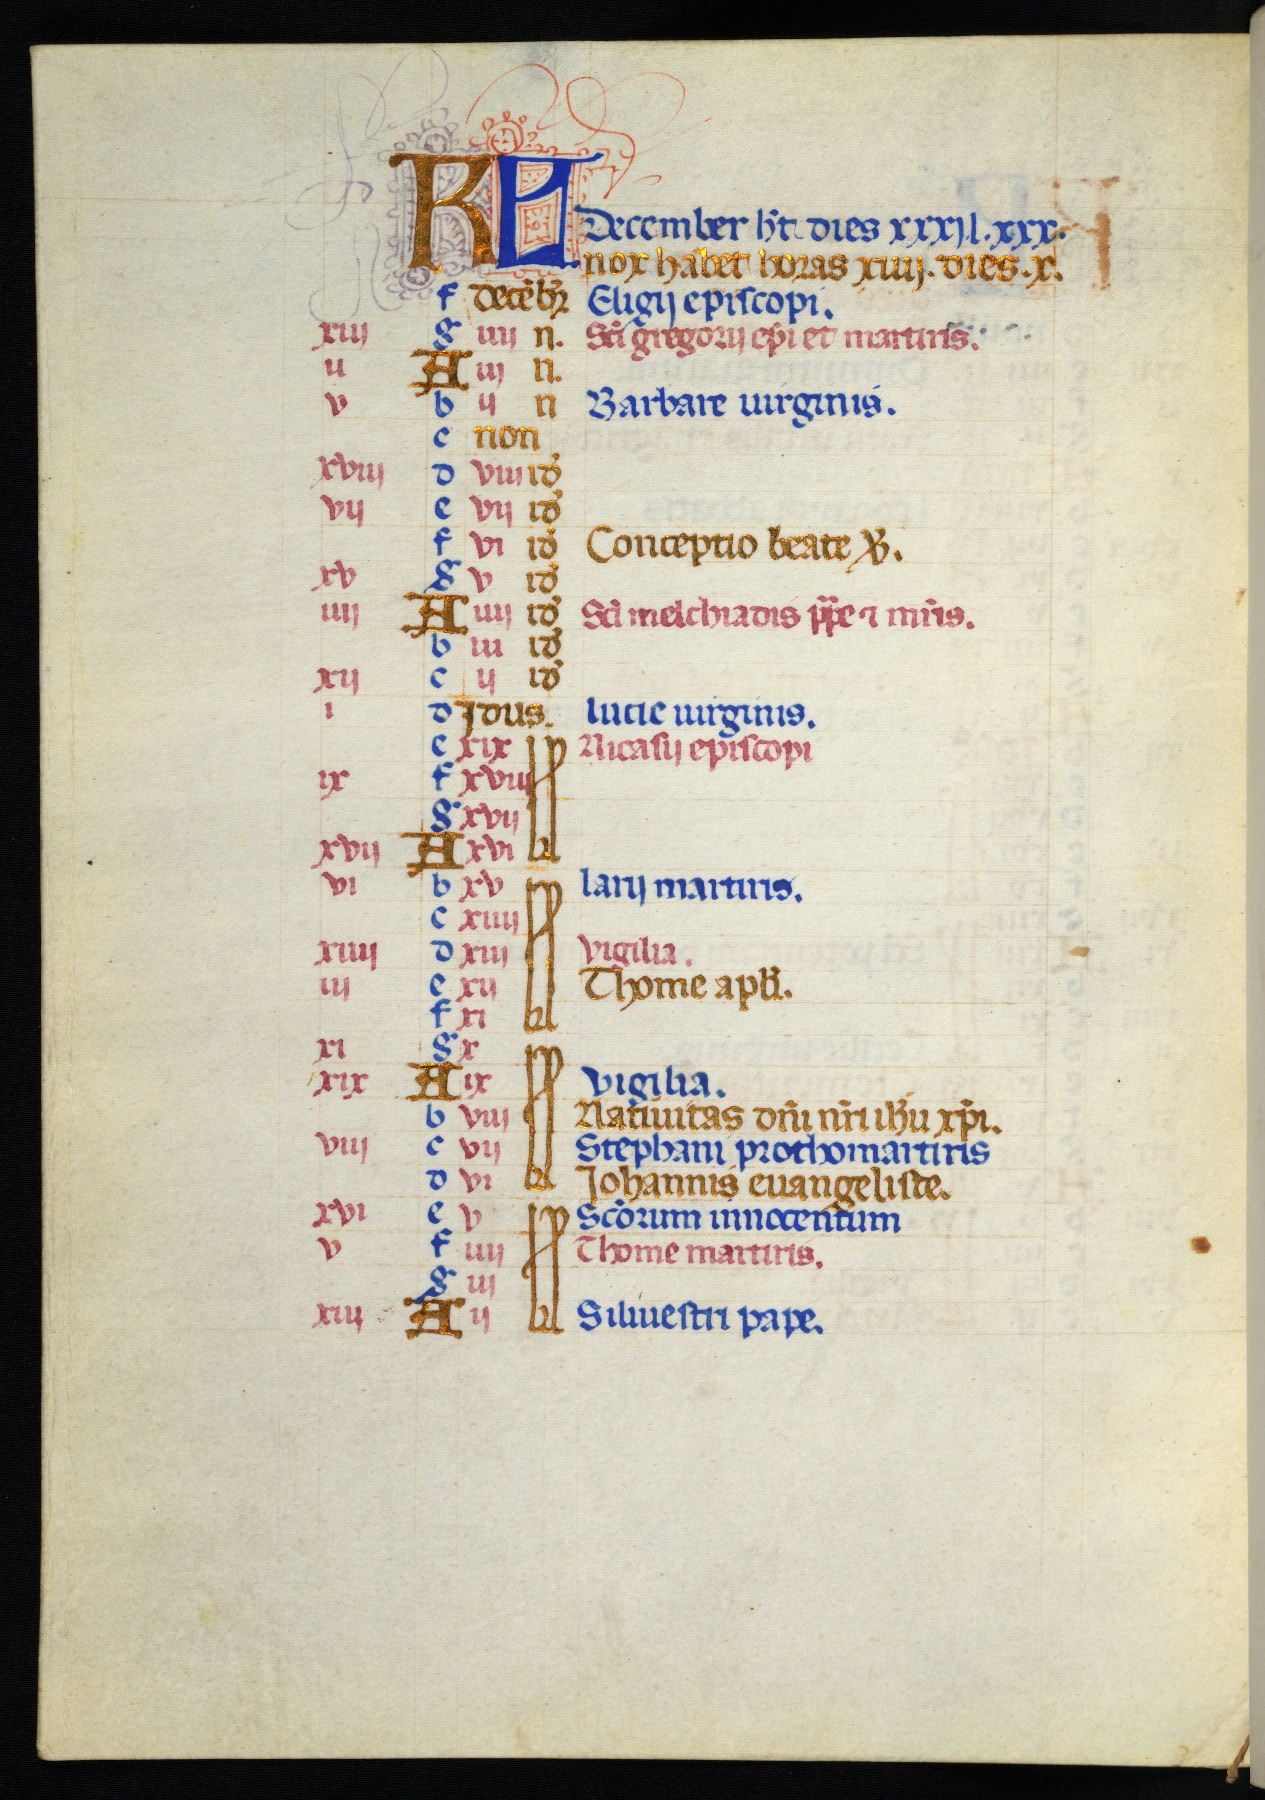 KL December h̄t dies xxxi l. xxx.
nox habet horas xiiij. dies. x.
f decēbr Eligij episcopi.
xiii g iiij n. Sc̄i gregorij ep̄i et martiris.
ii A iij n.
v b ij n Barbare uirginis.
c non
xviii d viii id
vij e vij id
f vi id Conceptio beate
xv g v id
iiij A iiij id Sc̄i melchiadis pp̄e ⁊ mr̄is.
b iii id
xij c ij id
i d Idus. lucie uirginis.
e xix Nicasij episcopi
ix f xviii
g xvij
xvij A xvi kl
vi b xv larij martiris.
c xiiij
xiiij d xiii vigilia.
iii e xij Thome apl̄i.
f xi kl
xi g x
xix A ix vigilia.
b viii Natiuitas dn̄i nr̄i ih̄u xp̄i.
viii c vij Stephani prothomartiris
d vi kl Johannis euangeliste.
xvi e v Sc̄orum innocentum
v f iiij Thome martiris.
g iij
xiij A ij kl Siluestri pape.